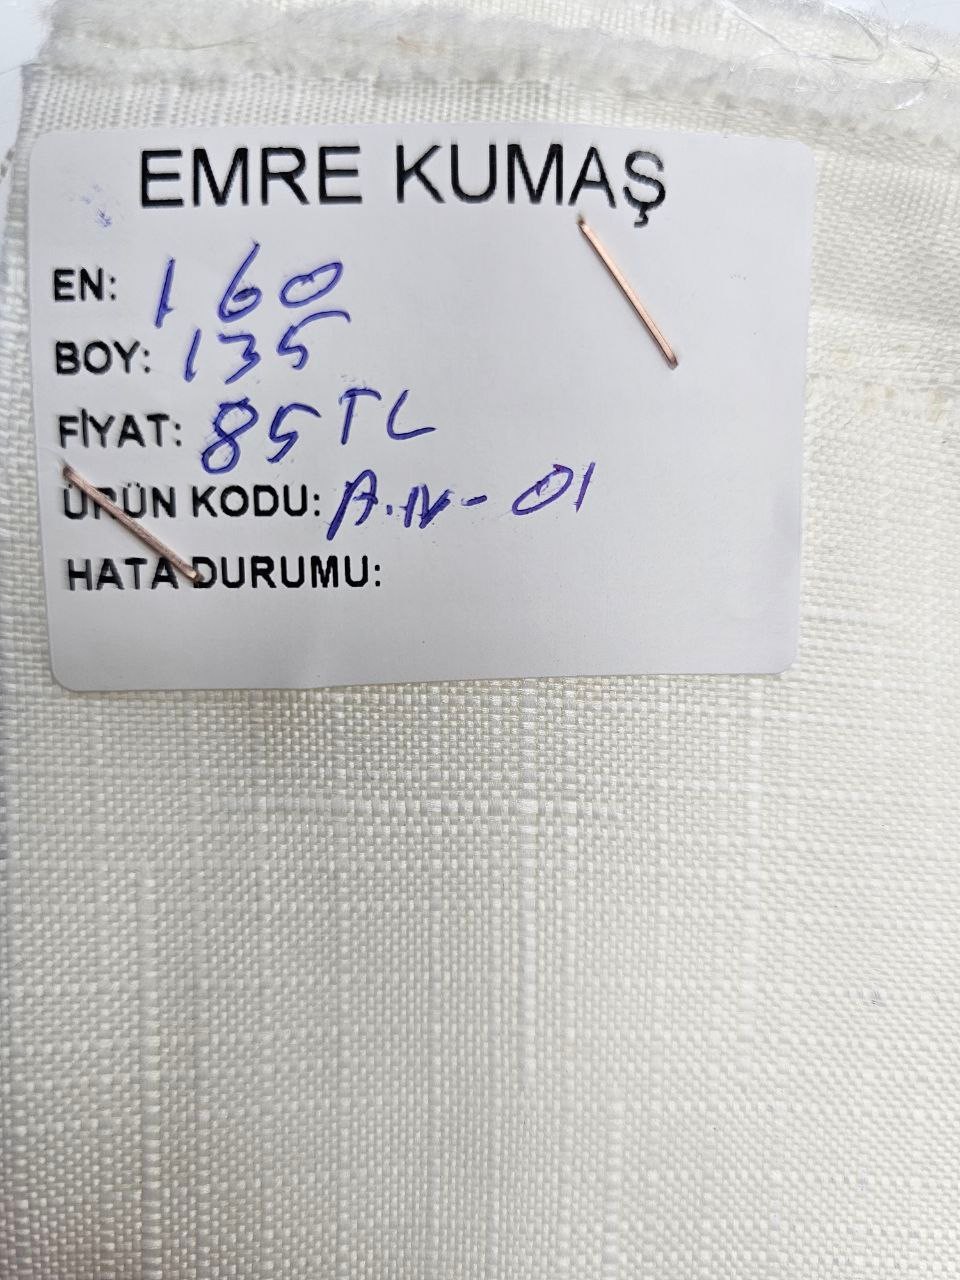 EMRE KUMAŞ
EN: 160
BOY: 135
FİYAT: 85 TL
ÜRÜN KODU: A.N-01
HATA DURUMU: